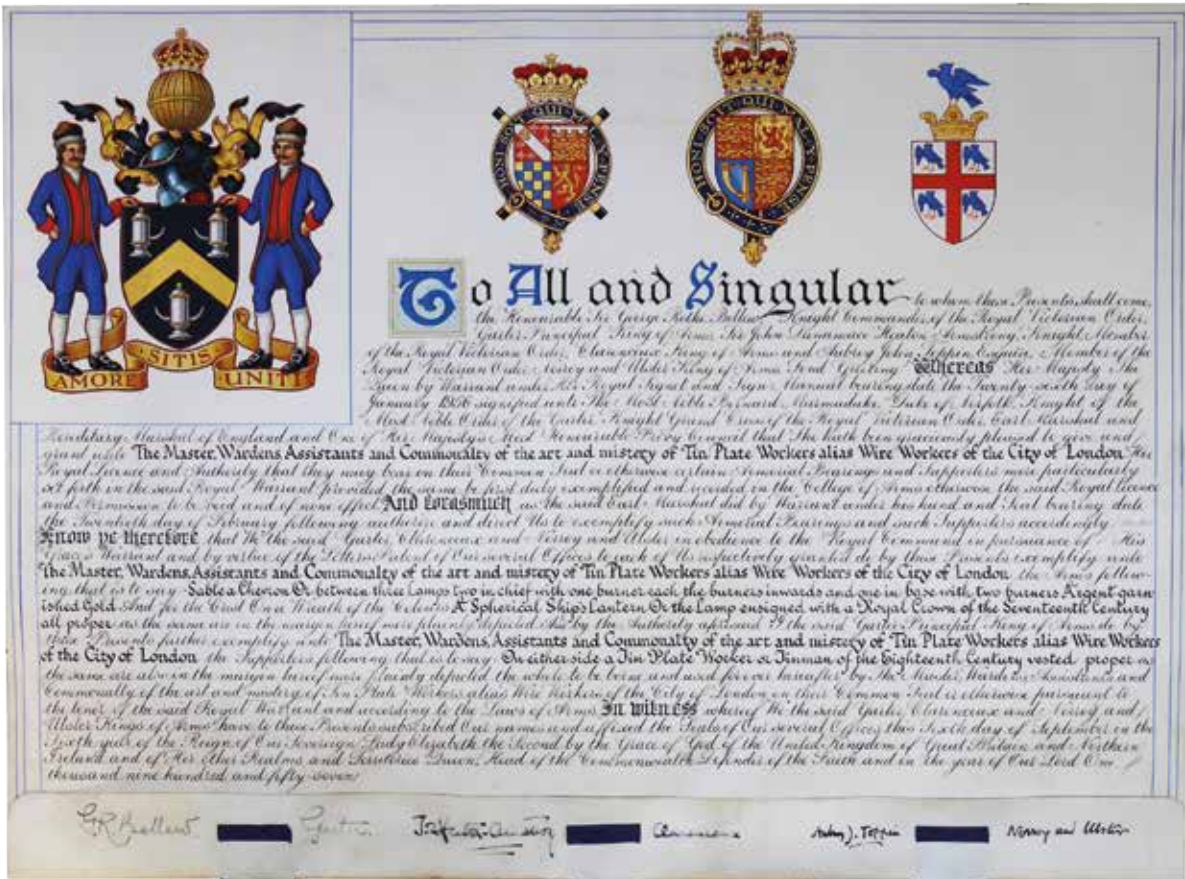 AMORE SITIS UNITI
HONI SOIT QUI MAL Y PENSE
HONI SOIT QUI MAL Y PENSE
To All and Singular to whom these Presents shall come,
the Honourable Sir George Rothe Bellew Knight Commander of the Royal Victorian Order,
Garter Principal King of Arms Sir John Dunamace Heaton-Armstrong, Knight, Member
of the Royal Victorian Order, Clarenceux King of Arms and Aubrey John Toppin Esquire, Member of the
Royal Victorian Order Norroy and Ulster King of Arms Send Greeting Whereas Her Majesty The
Queen by Warrant under Her Royal Signet and Sign Manual bearing date the Twenty-sixth day of
January signified unto The Most Noble Bernard Marmaduke, Duke of Norfolk, Knight of the
Most Noble Order of the Garter Knight Grand Cross of the Royal Victorian Order, Earl Marshal and
Hereditary Marshal of England and One of Her Majesty's Most Honourable Privy Council that She hath been graciously pleased to give and
grant unto The Master, Wardens, Assistants and Commonalty of the art and mistery of Tin Plate Workers alias Wire Workers of the City of London Her
Royal Licence and Authority that they may bear on their Common Seal or otherwise certain Armorial Bearings and Supporters more particularly
set forth in the said Royal Warrant provided the same be first duly exemplified and recorded in the College of Arms otherwise the said Royal Licence
and Permission to be void and of none effect And forasmuch as the said Earl Marshal did by Warrant under his hand and Seal bearing date
the Twentieth day of February following authorize and direct Us to exemplify such Armorial Bearings and such Supporters accordingly
Know ye therefore that We the said Garter, Clarenceux and Norroy and Ulster in obedience to the Royal Command in pursuance of His
Grace's Warrant and by virtue of the Letters Patent of Our several Offices to each of Us respectively granted do by these Presents exemplify unto
The Master, Wardens, Assistants and Commonalty of the art and mistery of Tin Plate Workers alias Wire Workers of the City of London the Arms follow-
ing that is to say Sable a Chevron Or between three Lamps two in chief with one burner each the burners inwards and one in base with two burners Argent garn-
ished Gold And for the Crest On a Wreath of the Colours A Spherical Ship's Lantern Or the Lamp ensigned with a Royal Crown of the Seventeenth Century
all proper as the same are in the margin hereof more plainly depicted And by the Authority aforesaid I the said Garter Principal King of Arms do by
these Presents further exemplify unto The Master, Wardens, Assistants and Commonalty of the art and mistery of Tin Plate Workers alias Wire Workers
of the City of London the Supporters following that is to say On either side a Tin Plate Worker or Tinman of the Eighteenth Century vested proper as
the same are also in the margin hereof more plainly depicted the whole to be borne and used for ever hereafter by The Master, Wardens, Assistants and
Commonalty of the art and mistery of Tin Plate Workers alias Wire Workers of the City of London on their Common Seal or otherwise pursuant to
the tenor of the said Royal Warrant and according to the Laws of Arms In witness whereof We the said Garter, Clarenceux and Norroy and
Ulster Kings of Arms have to these Presents subscribed Our names and affixed the Seals of Our several Offices this Sixth day of September in the
Sixth year of the Reign of Our Sovereign Lady Elizabeth the Second by the Grace of God of the United Kingdom of Great Britain and Northern
Ireland and of Her other Realms and Territories Queen, Head of the Commonwealth, Defender of the Faith and in the year of Our Lord One
thousand nine hundred and fifty-seven
G.R. Bellew Garter J. Heaton-Armstrong Clarenceux Aubrey J. Toppin Norroy and Ulster